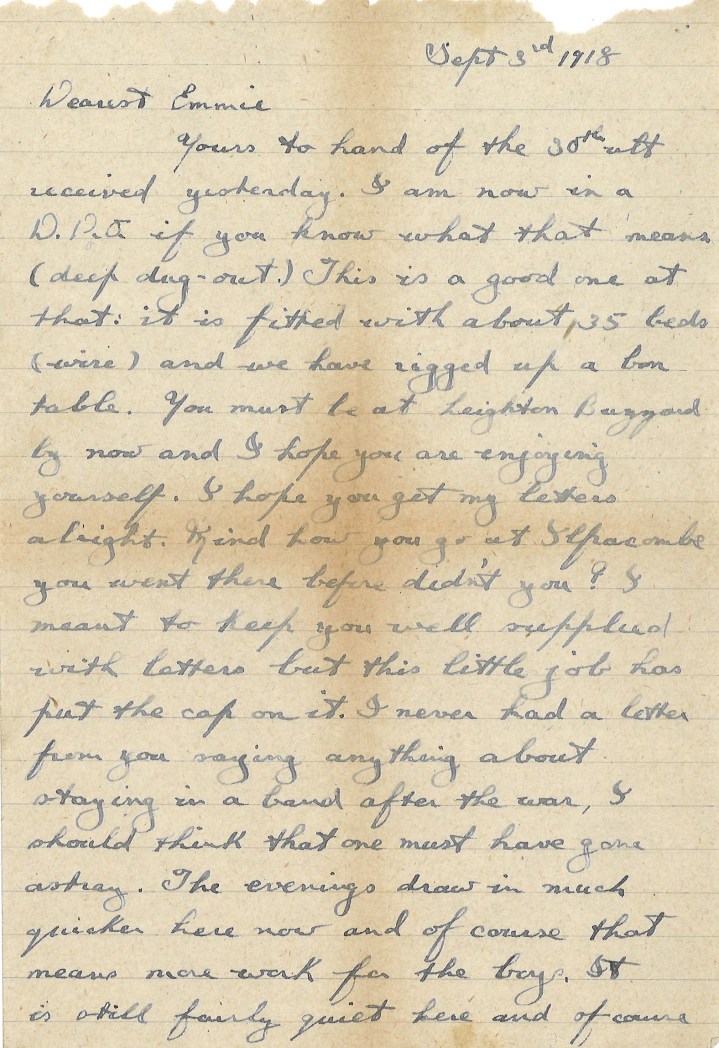 Sept 3rd 1918
Dearest Emmie
Yours to hand of the 30th ult
received yesterday. I am now in a
D.D.O if you know what that means
(deep dug-out.) This is a good one at
that: it is fitted with about 35 beds
(wire) and we have rigged up a bon
table. You must be at Leighton Buzzard
by now and I hope you are enjoying
yourself. I hope you get my letters
alright. Mind how you go at Ilfracombe
you went there before didn't you? I
meant to keep you well supplied
with letters but this little job has
put the cap on it. I never had a letter
from you saying anything about
staying in a band after the war, I
should think that one must have gone
astray. The evenings draw in much
quicker here now and of course that
means more work for the boys. It
is still fairly quiet here and of course